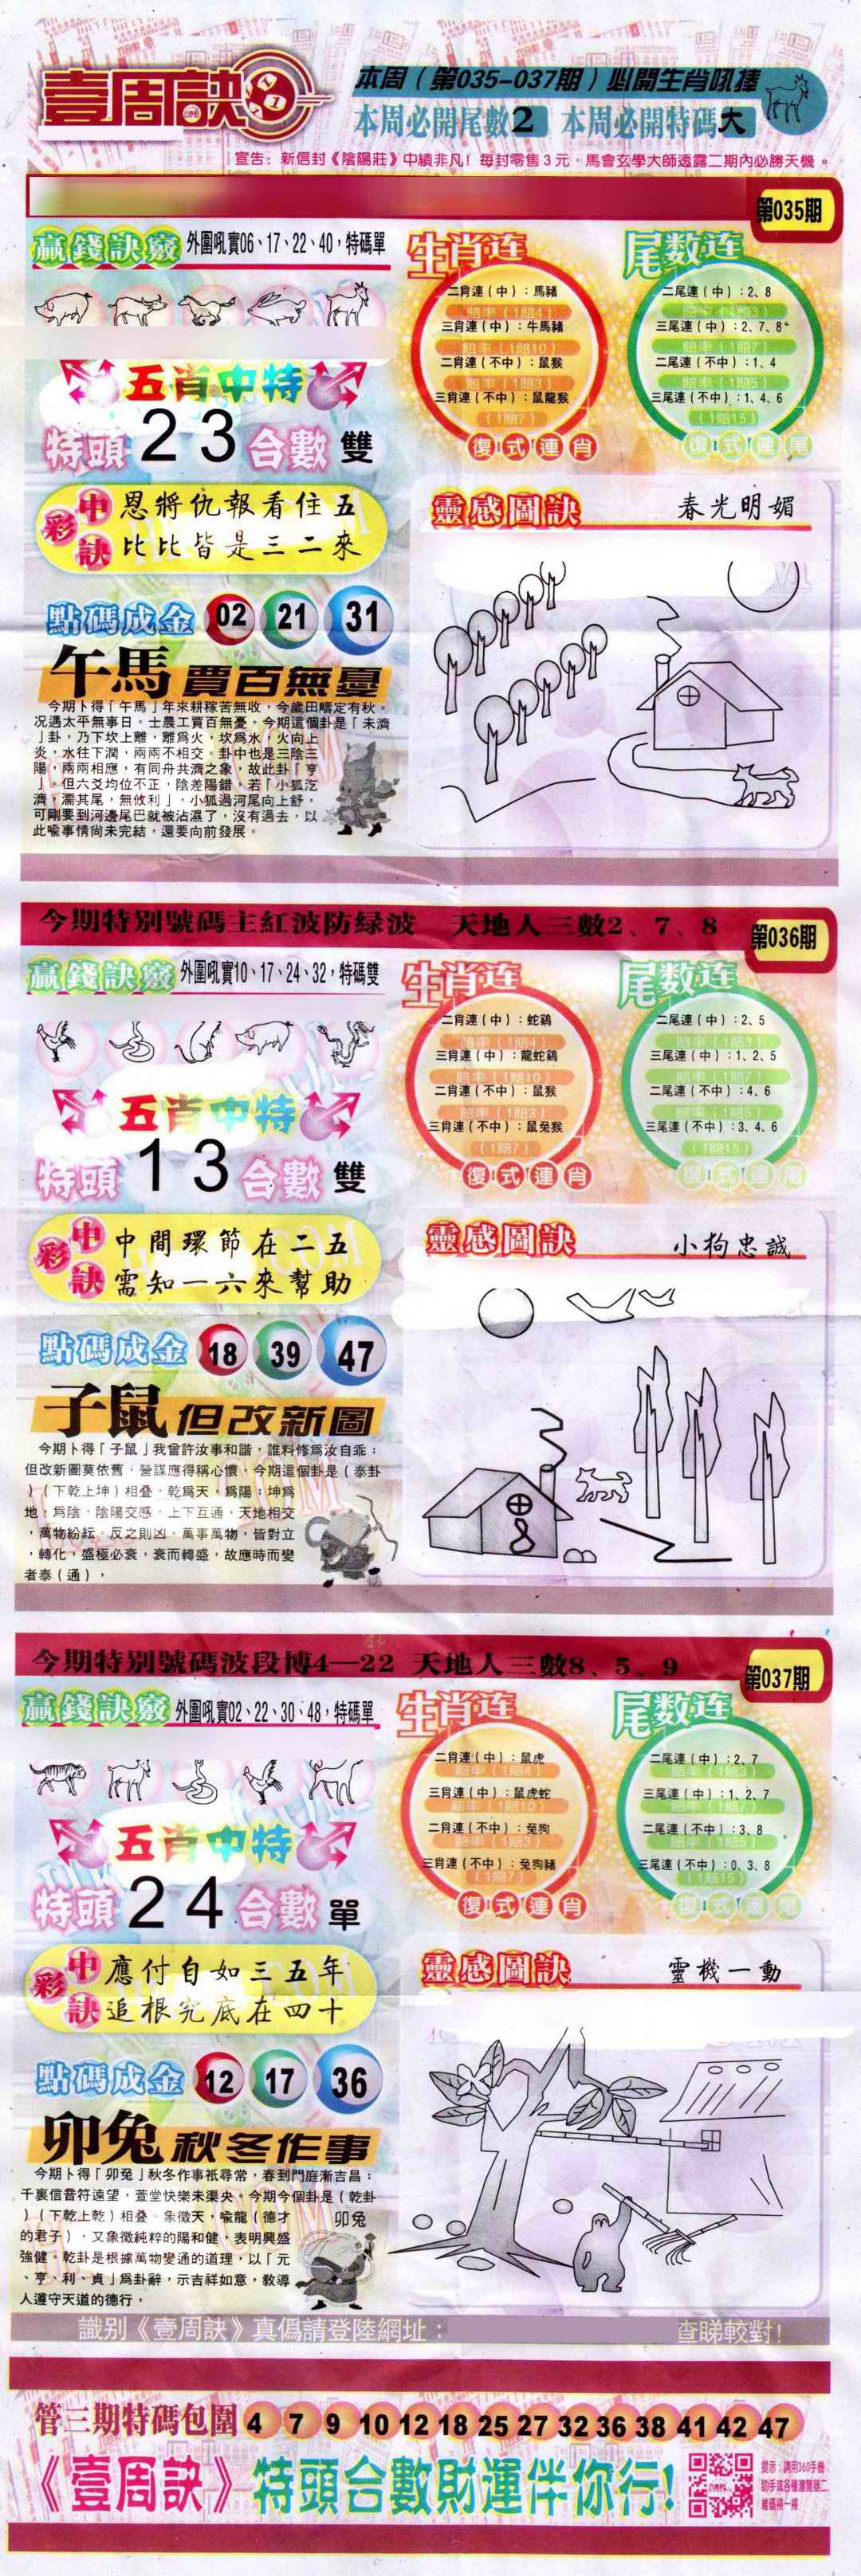 壹周訣
本周（第035-037期）必開生肖吼揰
本周必開尾數2 本周必開特碼大
宣告：新信封《陰陽莊》中績非凡！每封零售3元，馬會玄學大師透露二期內必勝天機。
第035期
贏錢訣竅 外圍吼實06、17、22、40，特碼單
五肖中特
特頭 2 3 合數 雙
中彩訣
恩將仇報看住五
比比皆是三二來
點碼成金 02 21 31
午馬 賈百無憂
今期卜得「午馬」年來耕稼苦無收，今歲田疇定有秋。
況遇太平無事日。士農工賈百無憂。今期這個卦是「未濟
」卦，乃下坎上離，離爲火，坎爲水，火向上
炎，水往下潤，兩兩不相交。卦中也是三陰三
陽，兩兩相應，有同舟共濟之象，故此卦「亨
」。但六爻均位不正，陰差陽錯，若「小狐汔
濟，濡其尾，無攸利」，小狐過河尾向上舒，
可剛要到河邊尾巴就被沾濕了，沒有過去，以
此喩事情尚未完結，還要向前發展。
生肖连
二肖連（中）：馬豬
賠率（1賠4）
三肖連（中）：牛馬豬
賠率（1賠10）
二肖連（不中）：鼠猴
賠率（1賠3）
三肖連（不中）：鼠龍猴
（1賠7）
復式連肖
尾数连
二尾連（中）：2、8
賠率（1賠3）
三尾連（中）：2、7、8
賠率（1賠7）
二尾連（不中）：1、4
賠率（1賠5）
三尾連（不中）：1、4、6
（1賠15）
復式連尾
靈感圖訣 春光明媚
今期特別號碼主紅波防緑波 天地人三數2、7、8
第036期
贏錢訣竅 外圍吼實10、17、24、32，特碼雙
五肖中特
特頭 1 3 合數 雙
中彩訣
中間環節在二五
需知一六來幫助
點碼成金 18 39 47
子鼠 但改新圖
今期卜得「子鼠」我曾許汝事和諧，誰料修爲汝自乖；
但改新圖莫依舊，營謀應得稱心懷。今期這個卦是（泰卦
）（下乾上坤）相叠，乾爲天，爲陽；坤爲
地，爲陰，陰陽交感，上下互通，天地相交
，萬物紛紜。反之則凶。萬事萬物，皆對立
，轉化，盛極必衰，衰而轉盛，故應時而變
者泰（通），
生肖连
二肖連（中）：蛇鷄
賠率（1賠4）
三肖連（中）：龍蛇鷄
賠率（1賠10）
二肖連（不中）：鼠猴
賠率（1賠3）
三肖連（不中）：鼠兔猴
（1賠7）
復式連肖
尾数连
二尾連（中）：2、5
賠率（1賠3）
三尾連（中）：1、2、5
賠率（1賠7）
二尾連（不中）：4、6
賠率（1賠5）
三尾連（不中）：3、4、6
（1賠15）
復式連尾
靈感圖訣 小狗忠誠
今期特別號碼波段博4—22 天地人三數8、5、9
第037期
贏錢訣竅 外圍吼實02、22、30、48，特碼單
五肖中特
特頭 2 4 合數 單
中彩訣
應付自如三五年
追根究底在四十
點碼成金 12 17 36
卯兔 秋冬作事
今期卜得「卯兔」秋冬作事祇尋常，春到門庭漸吉昌；
千裏信音符遠望，萱堂快樂未渠央。今期今個卦是（乾卦
）（下乾上乾）相叠。象徵天，喩龍（德才
的君子），又象徵純粹的陽和健，表明興盛
強健。乾卦是根據萬物變通的道理，以「元
、亨、利、貞」爲卦辭，示吉祥如意，教導
人遵守天道的德行，
卯兔
生肖连
二肖連（中）：鼠虎
賠率（1賠4）
三肖連（中）：鼠虎蛇
賠率（1賠10）
二肖連（不中）：兔狗
賠率（1賠3）
三肖連（不中）：兔狗豬
（1賠7）
復式連肖
尾数连
二尾連（中）：2、7
賠率（1賠3）
三尾連（中）：1、2、7
賠率（1賠7）
二尾連（不中）：3、8
賠率（1賠5）
三尾連（不中）：0、3、8
（1賠15）
復式連尾
靈感圖訣 靈機一動
識別《壹周訣》真僞請登陸網址： 查睇較對！
管三期特碼包圍 4 7 9 10 12 18 25 27 32 36 38 41 42 47
《壹周訣》特頭合數財運伴你行！
提示：請用360手機
助手或各種瀏覽器二
維碼掃一掃